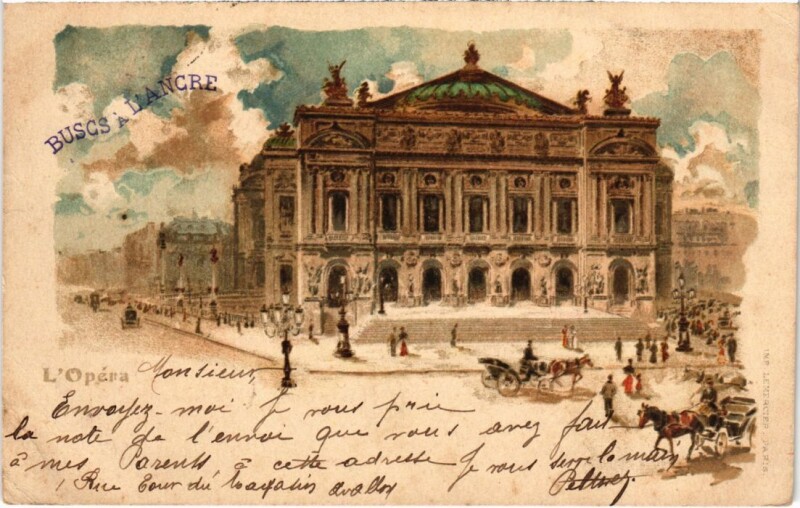 BUSCS À L'ANCRE
L'Opéra
Monsieur,
Envoyez-moi je vous prie
la note de l'envoi que vous avez fait
à mes Parents à cette adresse je vous serre la main
1 Rue Cour du
IMP. LEMERCIER PARIS